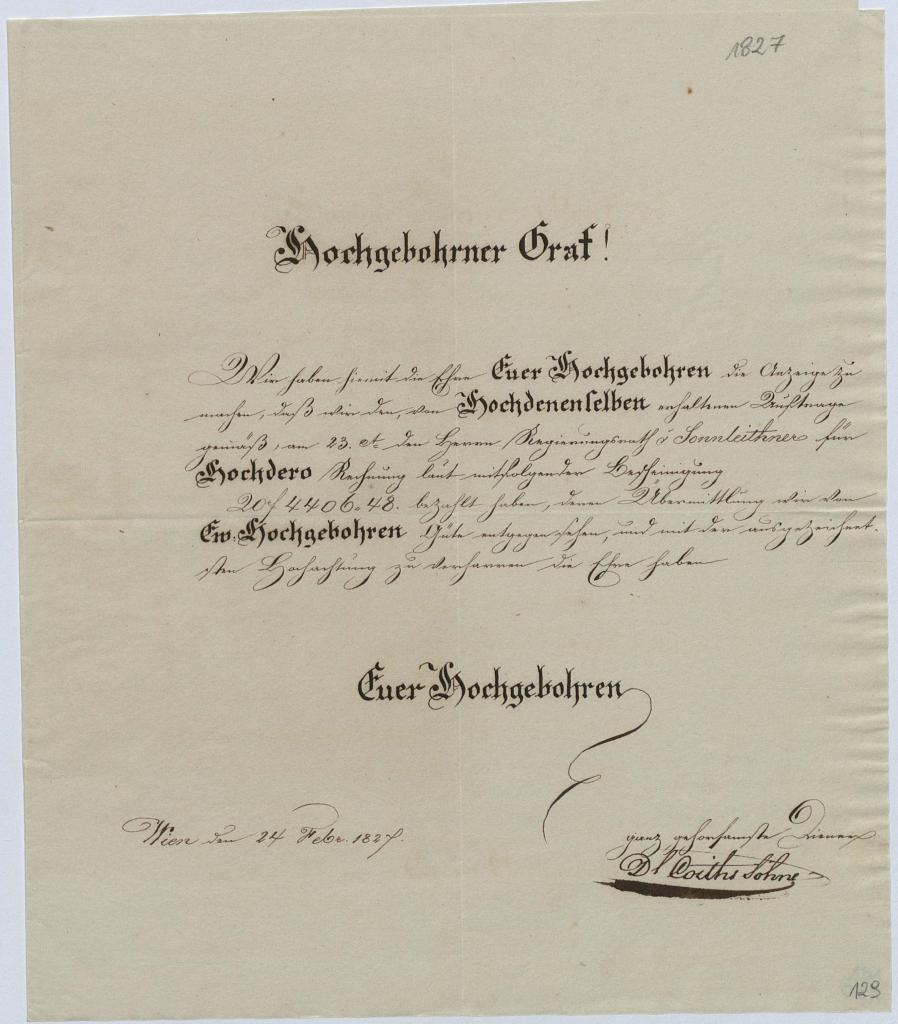 1827
Hochgebohrner Graf!
Wir haben hiemit die Ehre Euer Hochgebohren die Anzeige zu
machen, daß wir dem, von Hochdenenselben erhaltenen Auftrage
gemäß, am 23. ct. den Herrn Regierungsrath v Sonnleithner für
Hochdero Rechnung laut mitfolgender Bescheinigung
4406.48. bezahlt haben, deren Übermittlung wir von
Ew: Hochgebohren Güte entgegen sehen, und mit der ausgezeichnet-
sten Hochachtung zu verharren die Ehre haben
Euer Hochgebohren
Wien den 24 Febr. 1827.
ganz gehorsamste Diener
Coiths Söhne
129